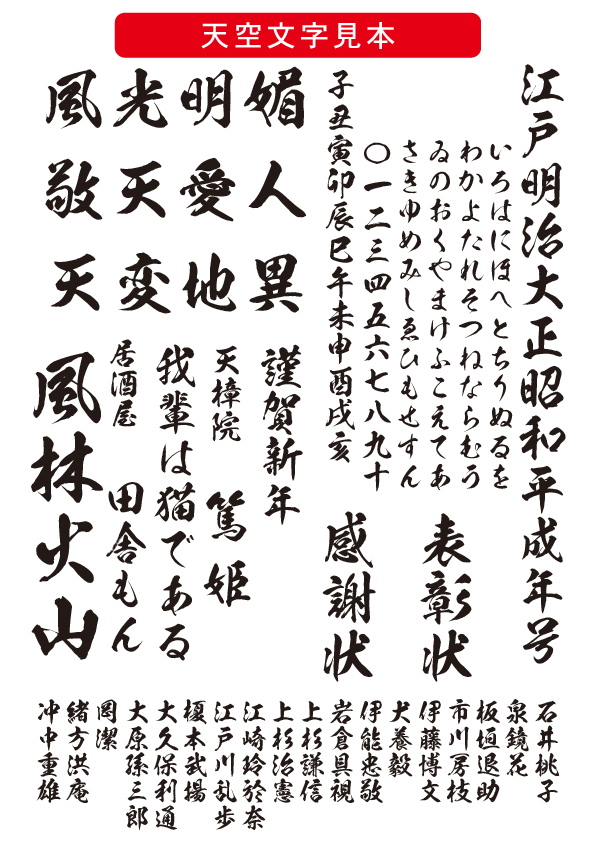 天空文字見本
江戸明治大正昭和平成年号
いろはにほへとちりぬるを
わかよたれそつねならむう
ゐのおくやまけふこえてあ
さきゆめみしゑひもせすん
〇一二三四五六七八九十
子丑寅卯辰巳午未申酉戌亥
表彰状
感謝状
媚人異
明愛地
光天変
風敬天
謹賀新年
天樟院 篤姫
我輩は猫である
居酒屋 田舎もん
風林火山
石井桃子
泉鏡花
板垣退助
市川房枝
伊藤博文
犬養毅
伊能忠敬
岩倉具視
上杉謙信
上杉治憲
江崎玲於奈
江戸川乱歩
榎本武揚
大久保利通
大原孫三郎
岡潔
緒方洪庵
沖中重雄